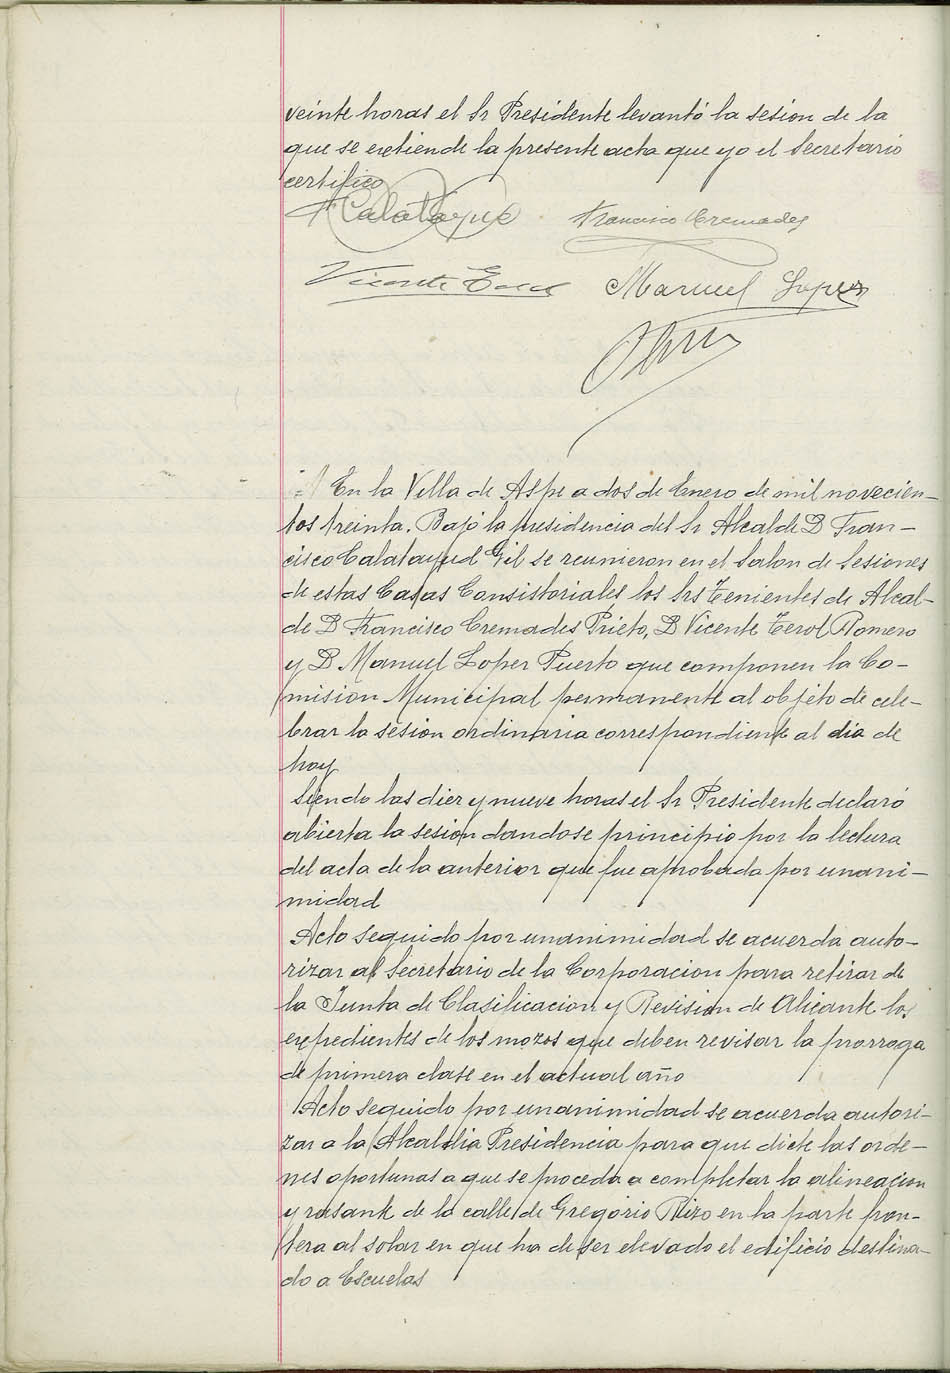 veinte horas el Sr Presidente levantó la sesion de la
que se extiende la presente acta que yo el Secretario
certifico
Calatayud Francisco Cremades
Vicente Manuel Lopez
En la Villa de Aspe a dos de Enero de mil novecien-
tos treinta. Bajo la presidencia del Sr Alcalde D Fran-
cisco Calatayud Gil se reunieron en el Salon de Sesiones
de estas Casas Consistoriales los Srs Tenientes de Alcal-
de D Francisco Cremades Prieto, D Vicente Cerol Romero
y D Manuel Lopez Puerto que componen la Co-
mision Municipal permanente al objeto de cele-
brar la sesion ordinaria correspondiente al dia de
hoy
Siendo las diez y nueve horas el Sr Presidente declaró
abierta la sesion dandose principio por la lectura
del acta de la anterior que fue aprobada por unani-
midad
Acto seguido por unanimidad se acuerda auto-
rizar al Secretario de la Corporacion para retirar de
la Junta de Clasificacion y Revision de Alicante los
expedientes de los mozos que deben revisar la prorroga
de primera clase en el actual año
Acto seguido por unanimidad se acuerda autori-
zar a la Alcaldia Presidencia para que dicte las orde-
nes oportunas a que se proceda a completar la alineacion
y rasante de la calle de Gregorio Rizo en la parte fron-
tera al solar en que ha de ser elevado el edificio destina-
do a Escuelas